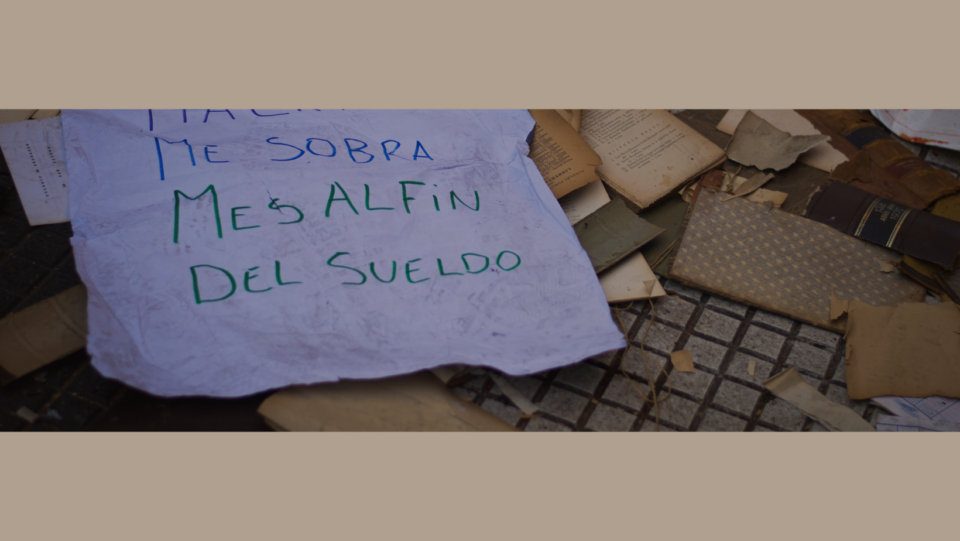 ME SOBRA
MES AL FiN
DEL SUELDO